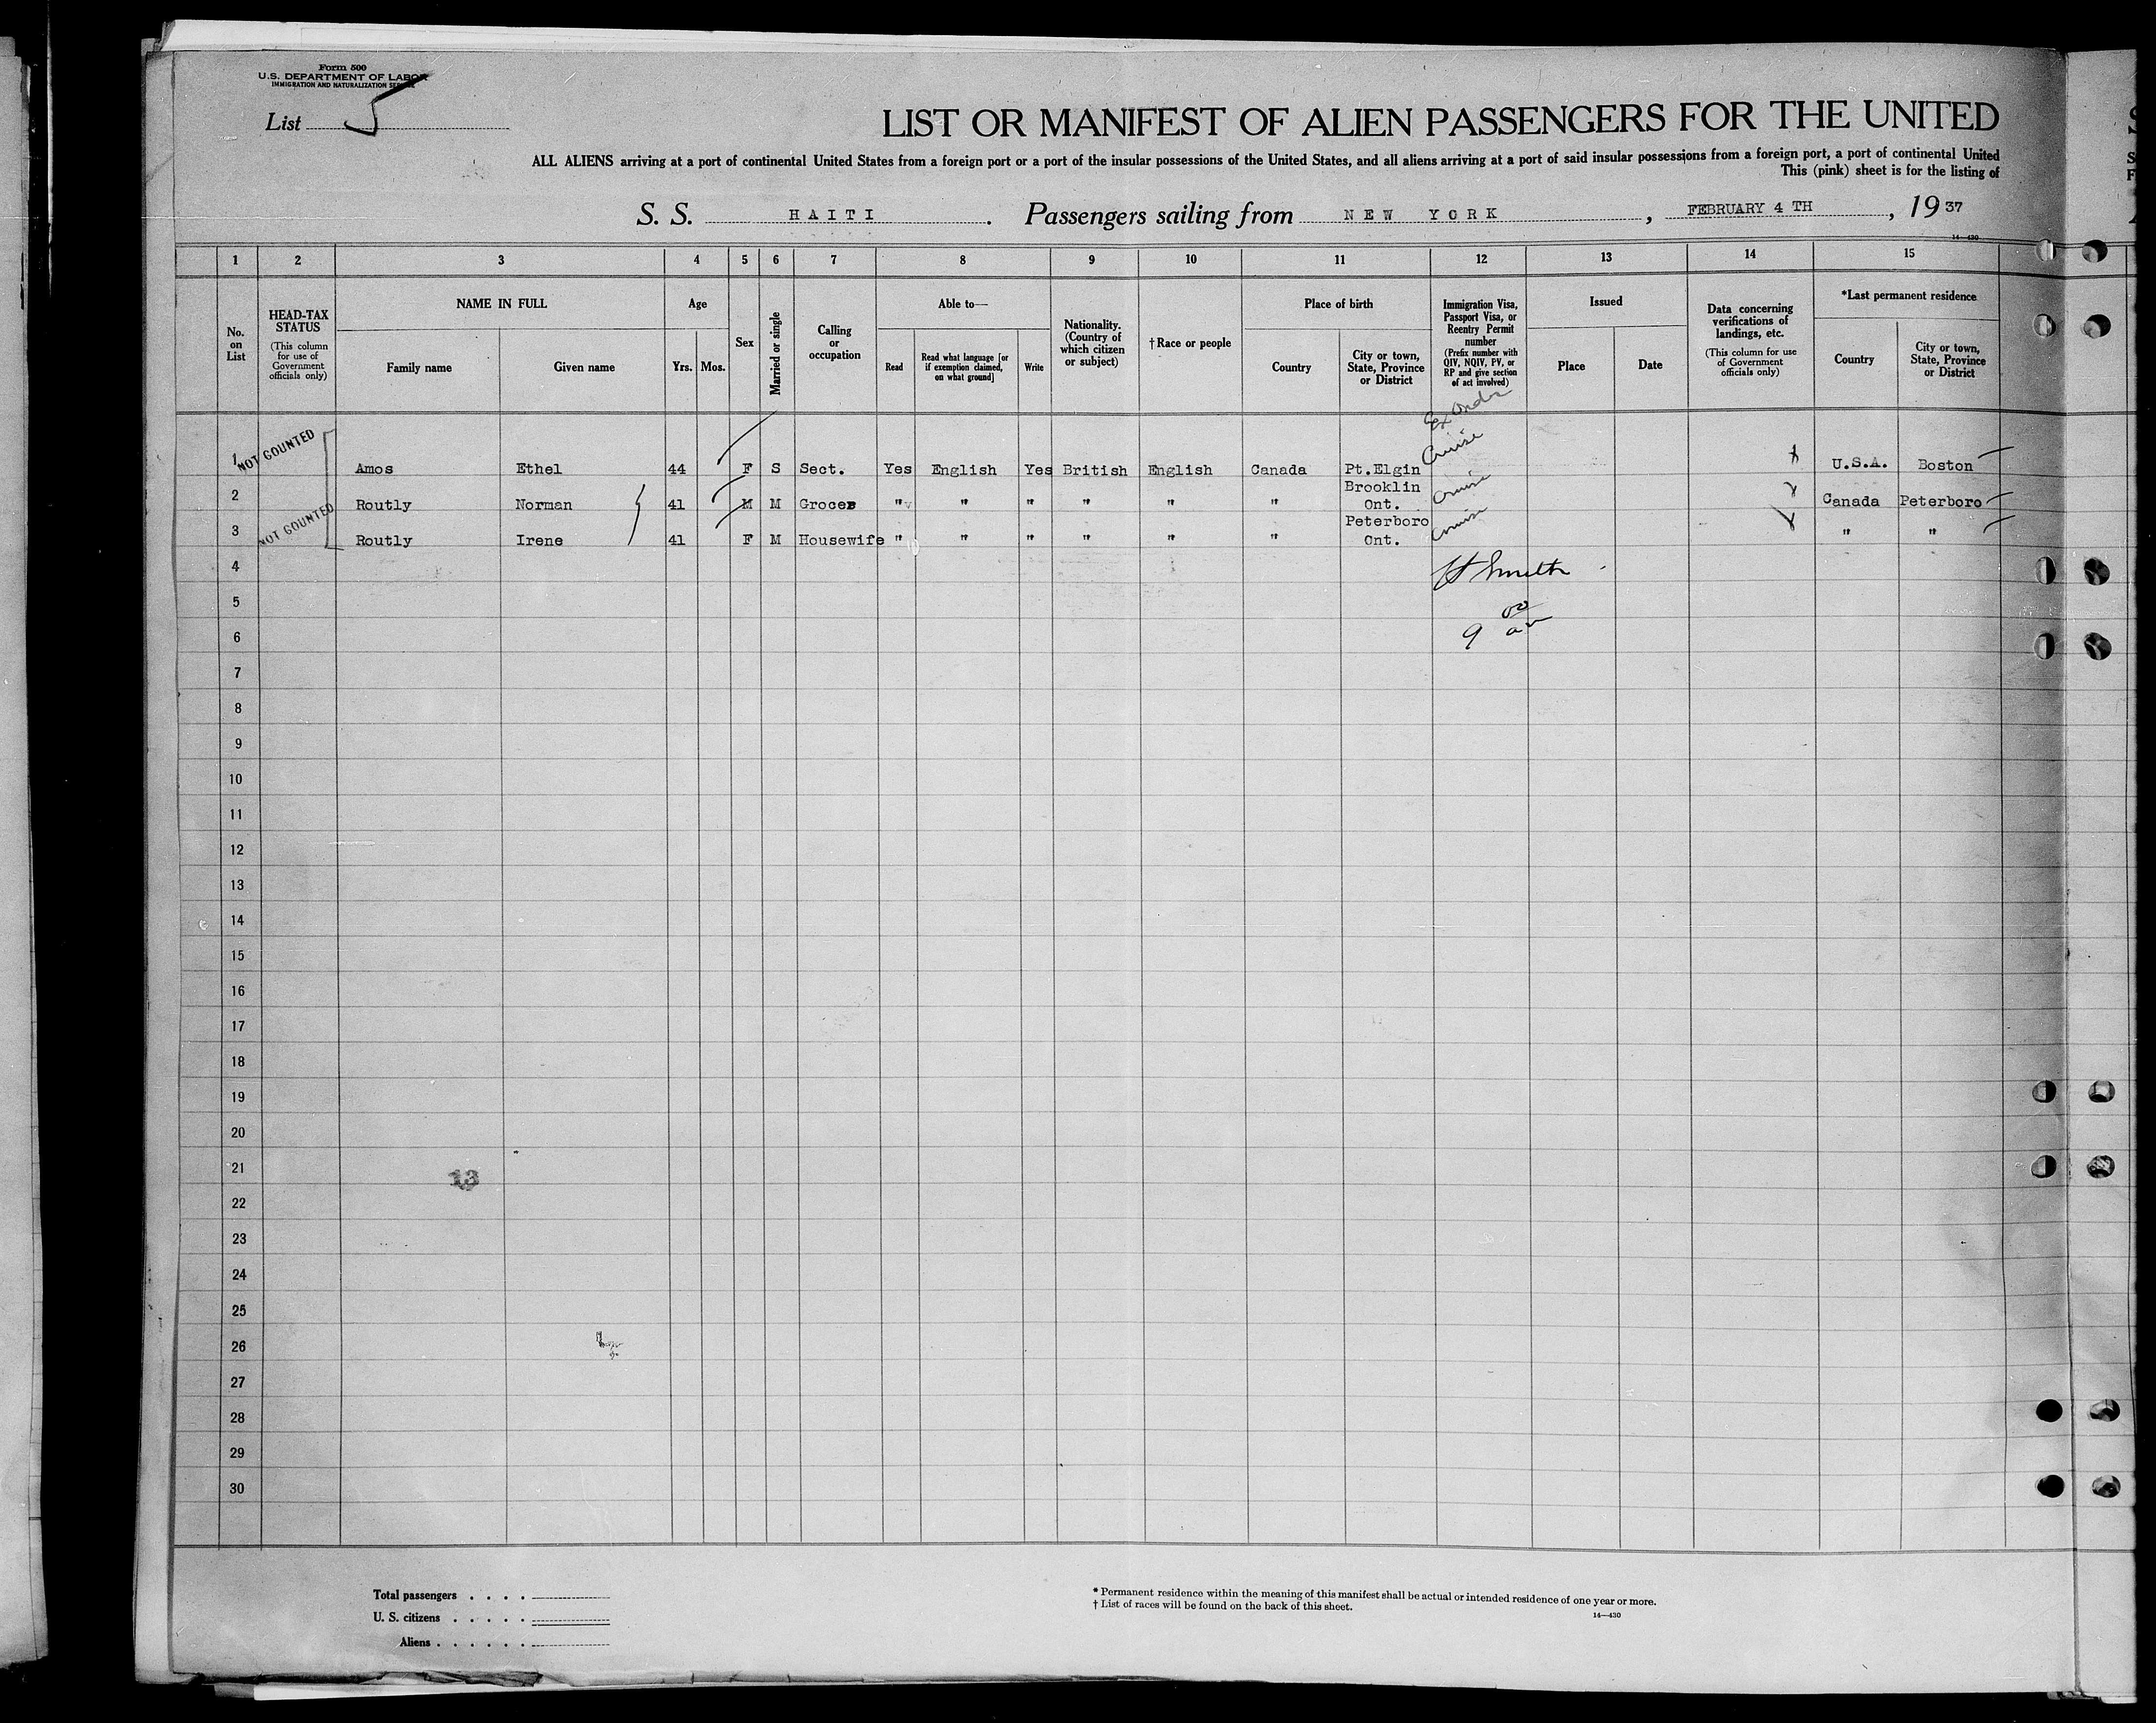 Form 500
U.S. DEPARTMENT OF LABOR
IMMIGRATION AND NATURALIZATION SERVICE
List 5
LIST OR MANIFEST OF ALIEN PASSENGERS FOR THE UNITED
ALL ALIENS arriving at a port of continental United States from a foreign port or a port of the insular possessions of the United States, and all aliens arriving at a port of said insular possessions from a foreign port, a port of continental United
This (pink) sheet is for the listing of
S. S. HAITI. Passengers sailing from NEW YORK, FEBRUARY 4 TH, 1937
14—430
1 2 3 4 5 6 7 8 9 10 11 12 13 14 15
No. on List
HEAD-TAX STATUS
(This column for use of Government officials only)
NAME IN FULL
Family name Given name
Age
Yrs. Mos.
Sex
Married or single
Calling or occupation
Able to—
Read
Read what language [or if exemption claimed, on what ground]
Write
Nationality. (Country of which citizen or subject)
†Race or people
Place of birth
Country
City or town, State, Province or District
Immigration Visa, Passport Visa, or Reentry Permit number
(Prefix number with QIV, NQIV, PV, or RP and give section of act involved)
Issued
Place Date
Data concerning verifications of landings, etc.
(This column for use of Government officials only)
*Last permanent residence
Country
City or town, State, Province or District
Ex Order
1 NOT COUNTED Amos Ethel 44 F S Sect. Yes English Yes British English Canada Pt.Elgin Cruise U.S.A. Boston
2 Routly Norman 41 M M Grocer " " " " " " Brooklin Ont. Cruise Canada Peterboro
3 NOT COUNTED Routly Irene 41 F M Housewife " " " " " " Peterboro Ont. Cruise " "
4 H Smith
5
6 9 00 am
7
8
9
10
11
12
13
14
15
16
17
18
19
20
21 13
22
23
24
25
26
27
28
29
30
Total passengers . . . .
U. S. citizens . . . . .
Aliens . . . . . .
* Permanent residence within the meaning of this manifest shall be actual or intended residence of one year or more.
† List of races will be found on the back of this sheet.
14—430